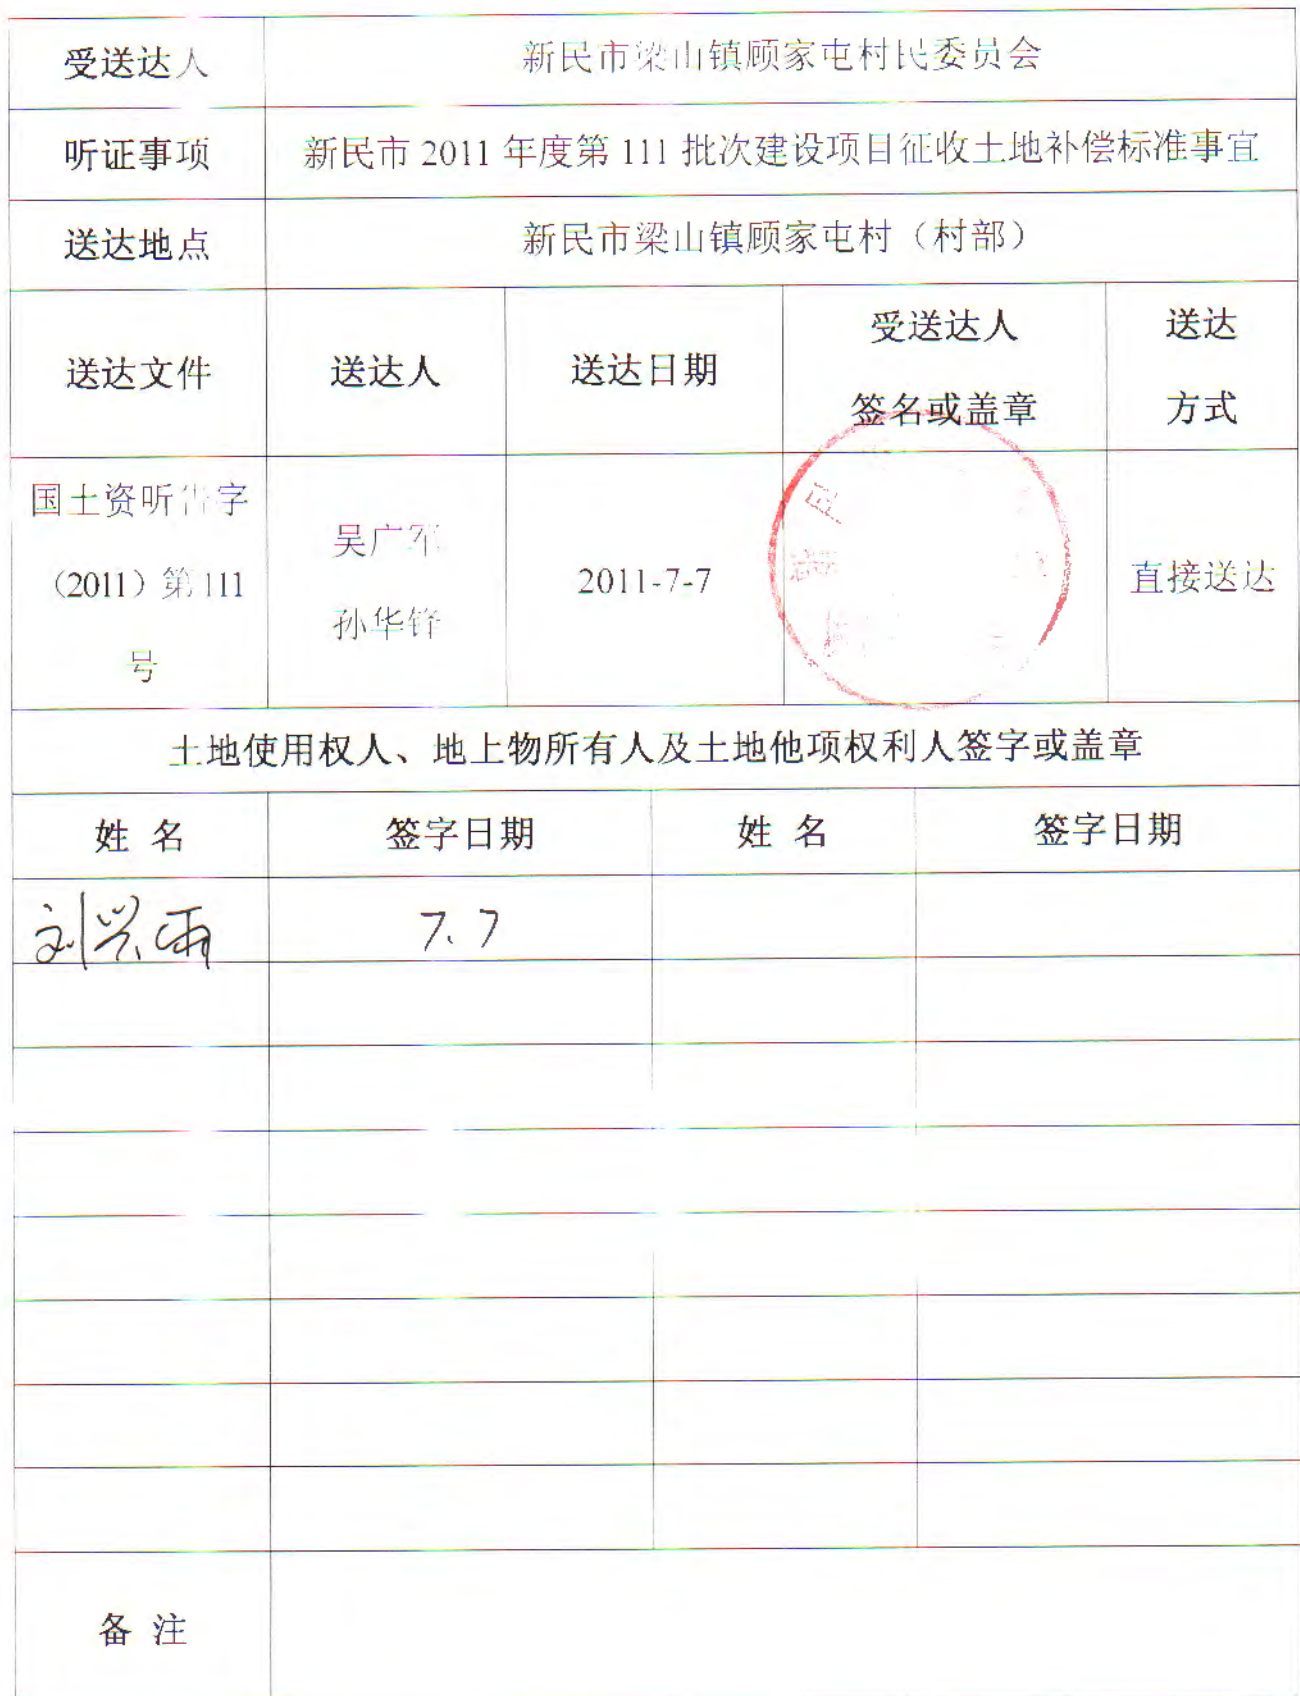 受送达人 新民市梁山镇顾家屯村民委员会
听证事项 新民市 2011 年度第 111 批次建设项目征收土地补偿标准事宜
送达地点 新民市梁山镇顾家屯村（村部）
送达文件 送达人 送达日期 受送达人 签名或盖章 送达 方式
国土资听告字
（2011）第 111
号
吴广军
孙华锋
2011-7-7
直接送达
土地使用权人、地上物所有人及土地他项权利人签字或盖章
姓 名 签字日期 姓 名 签字日期
刘兴雨 7.7
备 注